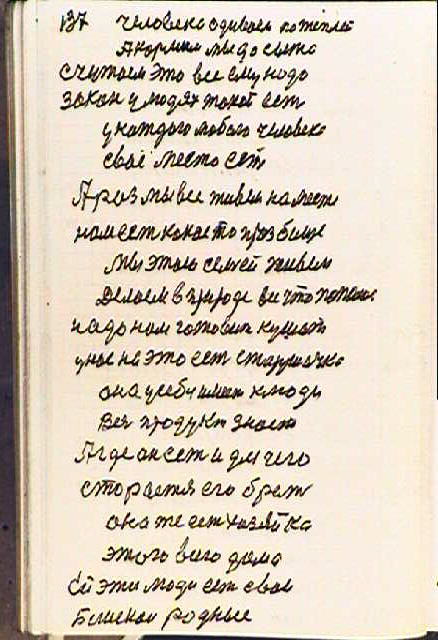 137 человека одиваем потеплей
Акормим мы до сыта
считаем это все ему надо
закон у людях такой ест
у каждого любого человека
свае место ест
А раз мы все живем на месте
нам ест какое то прозбище
мы этою семьей живем
Делаем в природе все что
надо нам готовит кушат
у нас на это ест старушачка
она у себя имеет к люди
Вся продукт знает
А где он ест и для чего
старается его брат
она же ест хозяйка
этого всего дома
Ей эти люди ест свои
Близкои родные